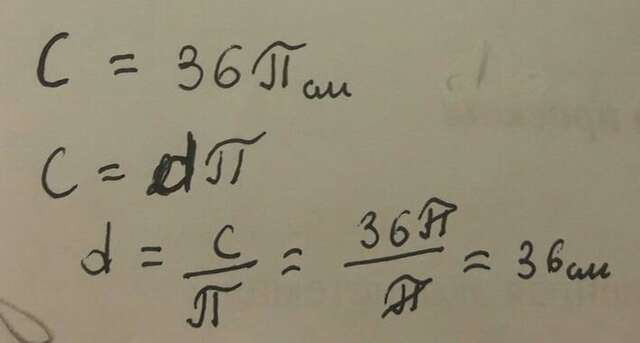 C = 36π см
C = dπ
d = C/π = 36π/π = 36 см